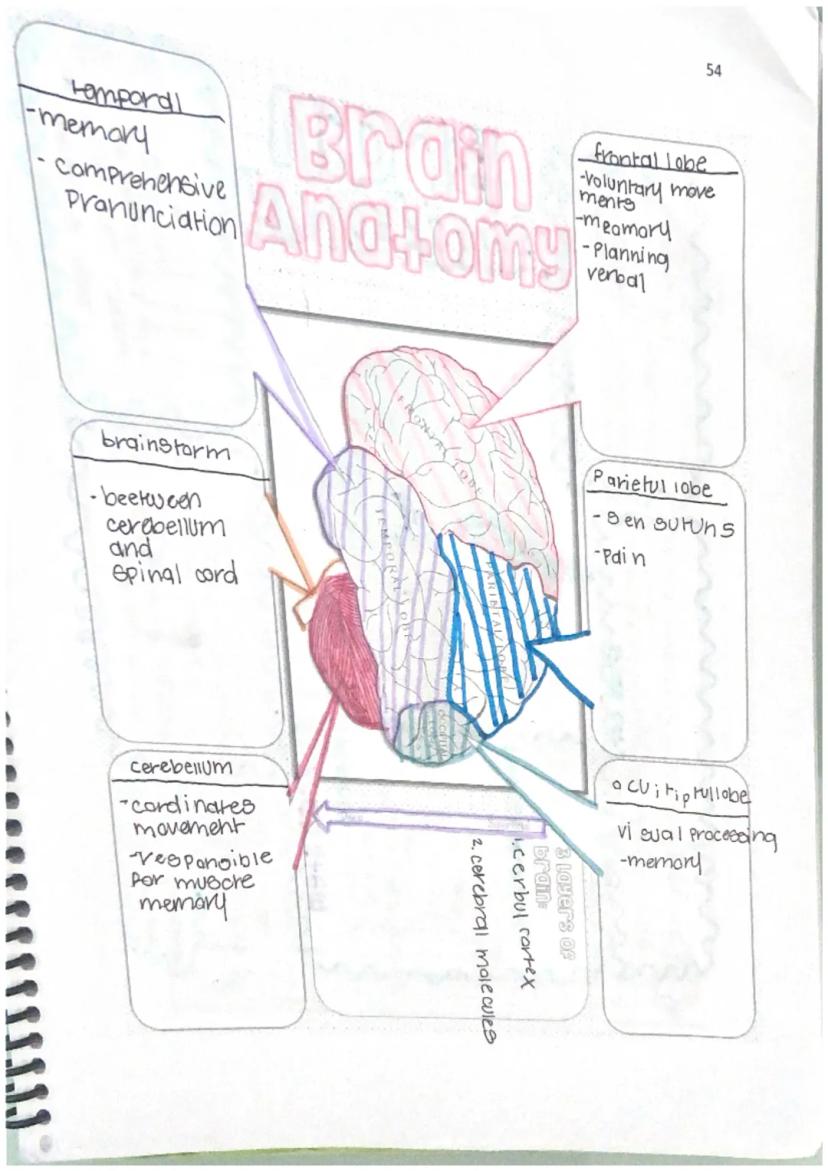 54
Brain
Anatomy
temporal
-memory
- comprehensive
pranunciation
frontal lobe
-voluntary move
ments
-meamory
- Planning
verbal
FRONTAL LOBE
TEMPORAL LOBE
PARIETAL LOBE
OCCIPITAL
brainstorm
- beetween
cerebellum
and
spinal cord
Parietul lobe
- sen suruns
-pain
cerebellum
-cordinates
movement
-responsible
for muscle
memory
visual processing
-memory
3 Layers of
brain:
1. cerbul cortex
2. cerebral molecules